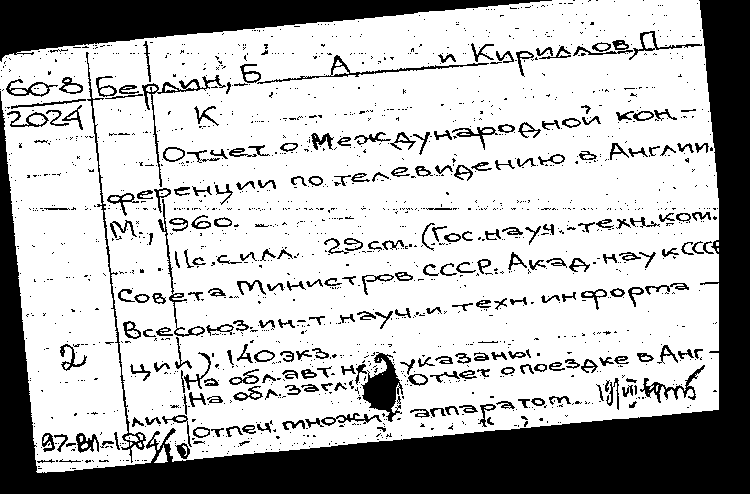 60-8 Берлин, Б А. и Кириллов, П
2024 К
Отчет о Международной кон-
ференции по телевидению в Англии.
М., 1960.
11с. с илл. 29 cm. (Гос. науч.-техн. ком.
Совета Министров СССР. Акад. наук СССР
Всесоюз. ин-т науч. и техн. информа-
2 ции). 140 экз.
На обл. авт. не указаны.
На обл. загл. Отчет о поездке в Анг-
лию.
97-ВЛ-1584/10 Отпеч. множит. аппаратом.